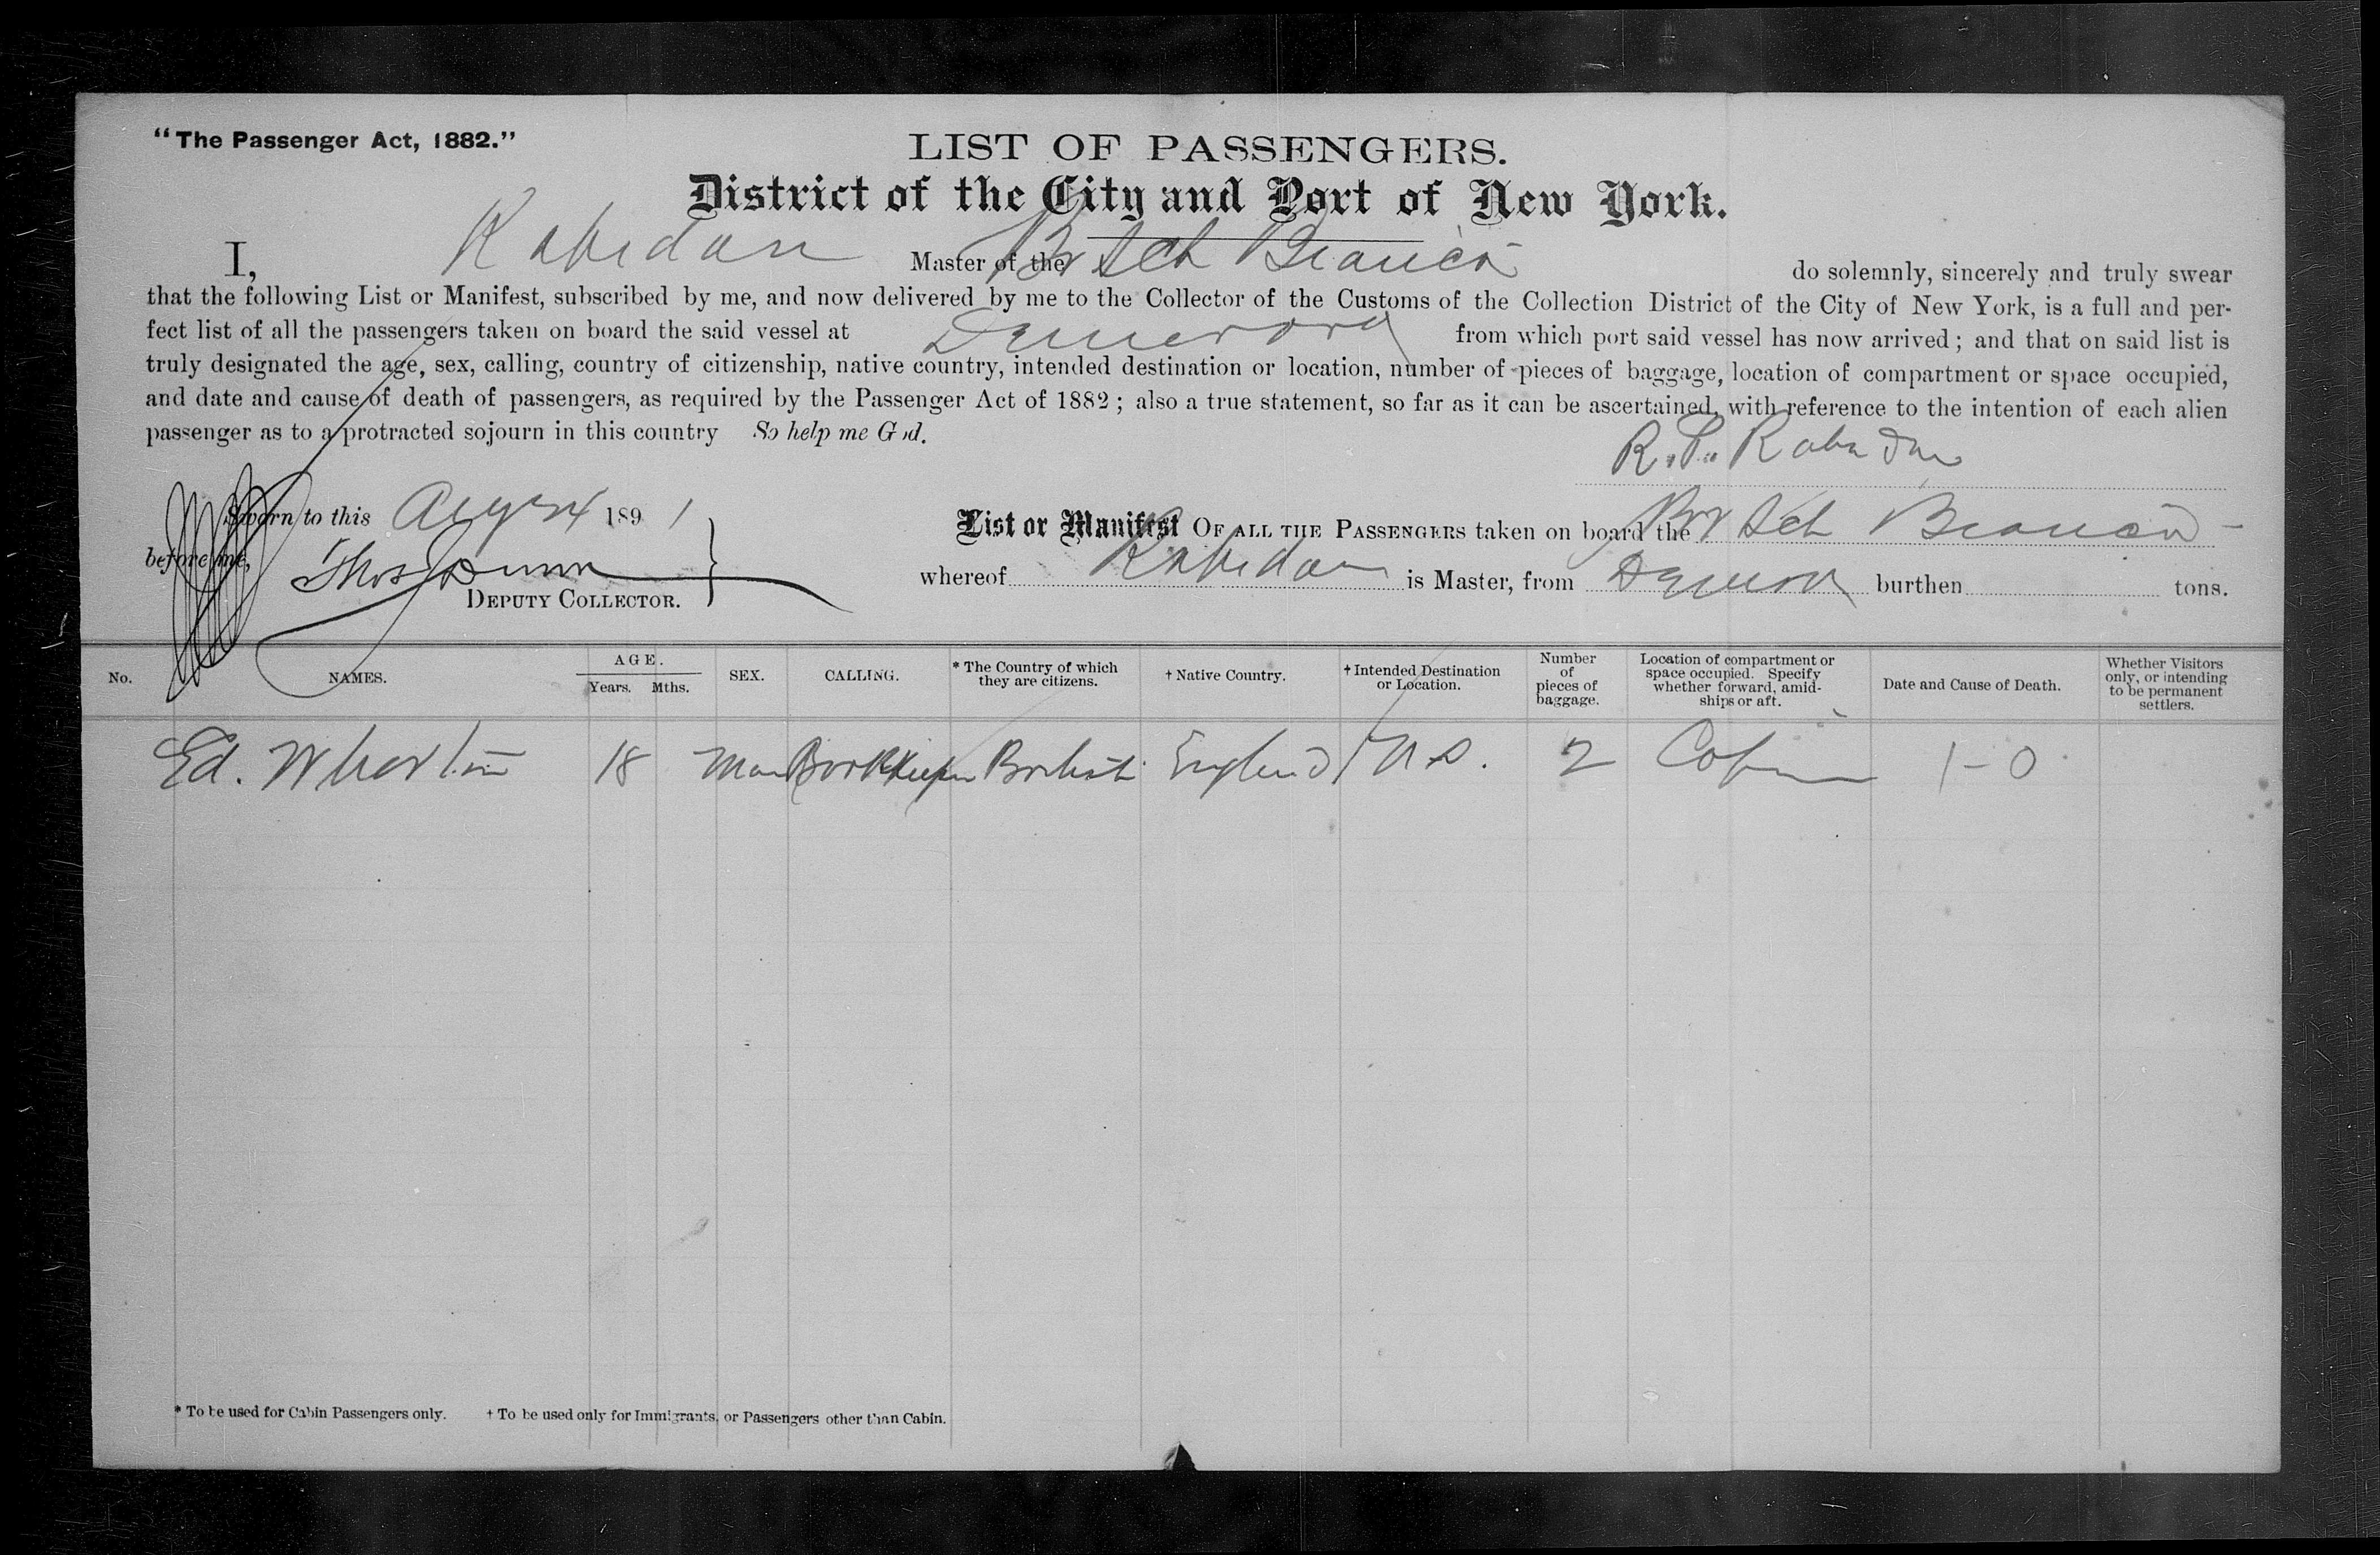 "The Passenger Act, 1882."
LIST OF PASSENGERS.
District of the City and Port of New York.
I, Master of the Br Sch Bianca do solemnly, sincerely and truly swear
that the following List or Manifest, subscribed by me, and now delivered by me to the Collector of the Customs of the Collection District of the City of New York, is a full and per-
fect list of all the passengers taken on board the said vessel at Demerara from which port said vessel has now arrived; and that on said list is
truly designated the age, sex, calling, country of citizenship, native country, intended destination or location, number of pieces of baggage, location of compartment or space occupied,
and date and cause of death of passengers, as required by the Passenger Act of 1882; also a true statement, so far as it can be ascertained, with reference to the intention of each alien
passenger as to a protracted sojourn in this country So help me God.
Sworn to this Aug 24 1891
before me,
Thos Dunn
DEPUTY COLLECTOR.
List or Manifest OF ALL THE PASSENGERS taken on board the Br Sch Bianca
whereof is Master, from burthen tons.
No. NAMES. AGE. Years. Mths. SEX. CALLING. * The Country of which they are citizens. † Native Country. † Intended Destination or Location. Number of pieces of baggage. Location of compartment or space occupied. Specify whether forward, amid-ships or aft. Date and Cause of Death. Whether Visitors only, or intending to be permanent settlers.
Ed. Wharton 18 Man Bookkeeper British England U S. 2 Cabin 1-0
* To be used for Cabin Passengers only. † To be used only for Immigrants, or Passengers other than Cabin.